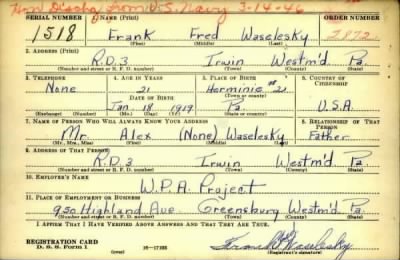 Hon Discha. from U.S. Navy 3-14-46
SERIAL NUMBER 1. NAME (Print) ORDER NUMBER
1518 Frank Fred Waselesky 2872
(First) (Middle) (Last)
2. ADDRESS (Print)
R.D.3 Irwin Westm'd Pa.
(Number and street or R. F. D. number) (Town) (County) (State)
3. TELEPHONE 4. AGE IN YEARS 5. PLACE OF BIRTH 6. COUNTRY OF CITIZENSHIP
None 21 Herminie #2
DATE OF BIRTH (Town or county)
Jan 18 1919 Pa. U.S.A.
(Exchange) (Number) (Mo.) (Day) (Yr.) (State or country)
7. NAME OF PERSON WHO WILL ALWAYS KNOW YOUR ADDRESS 8. RELATIONSHIP OF THAT PERSON
Mr. Alex (None) Waselesky Father
(Mr., Mrs., Miss) (First) (Middle) (Last)
9. ADDRESS OF THAT PERSON
R.D.3 Irwin Westm'd Pa.
(Number and street or R. F. D. number) (Town) (County) (State)
10. EMPLOYER'S NAME
W.P.A. Project
11. PLACE OF EMPLOYMENT OR BUSINESS
930 Highland Ave Greensburg Westm'd Pa.
(Number and street or R. F. D. number) (Town) (County) (State)
I AFFIRM THAT I HAVE VERIFIED ABOVE ANSWERS AND THAT THEY ARE TRUE.
REGISTRATION CARD
D. S. S. Form 1 (over) 16-17105 Frank F Waselesky
(Registrant's signature)